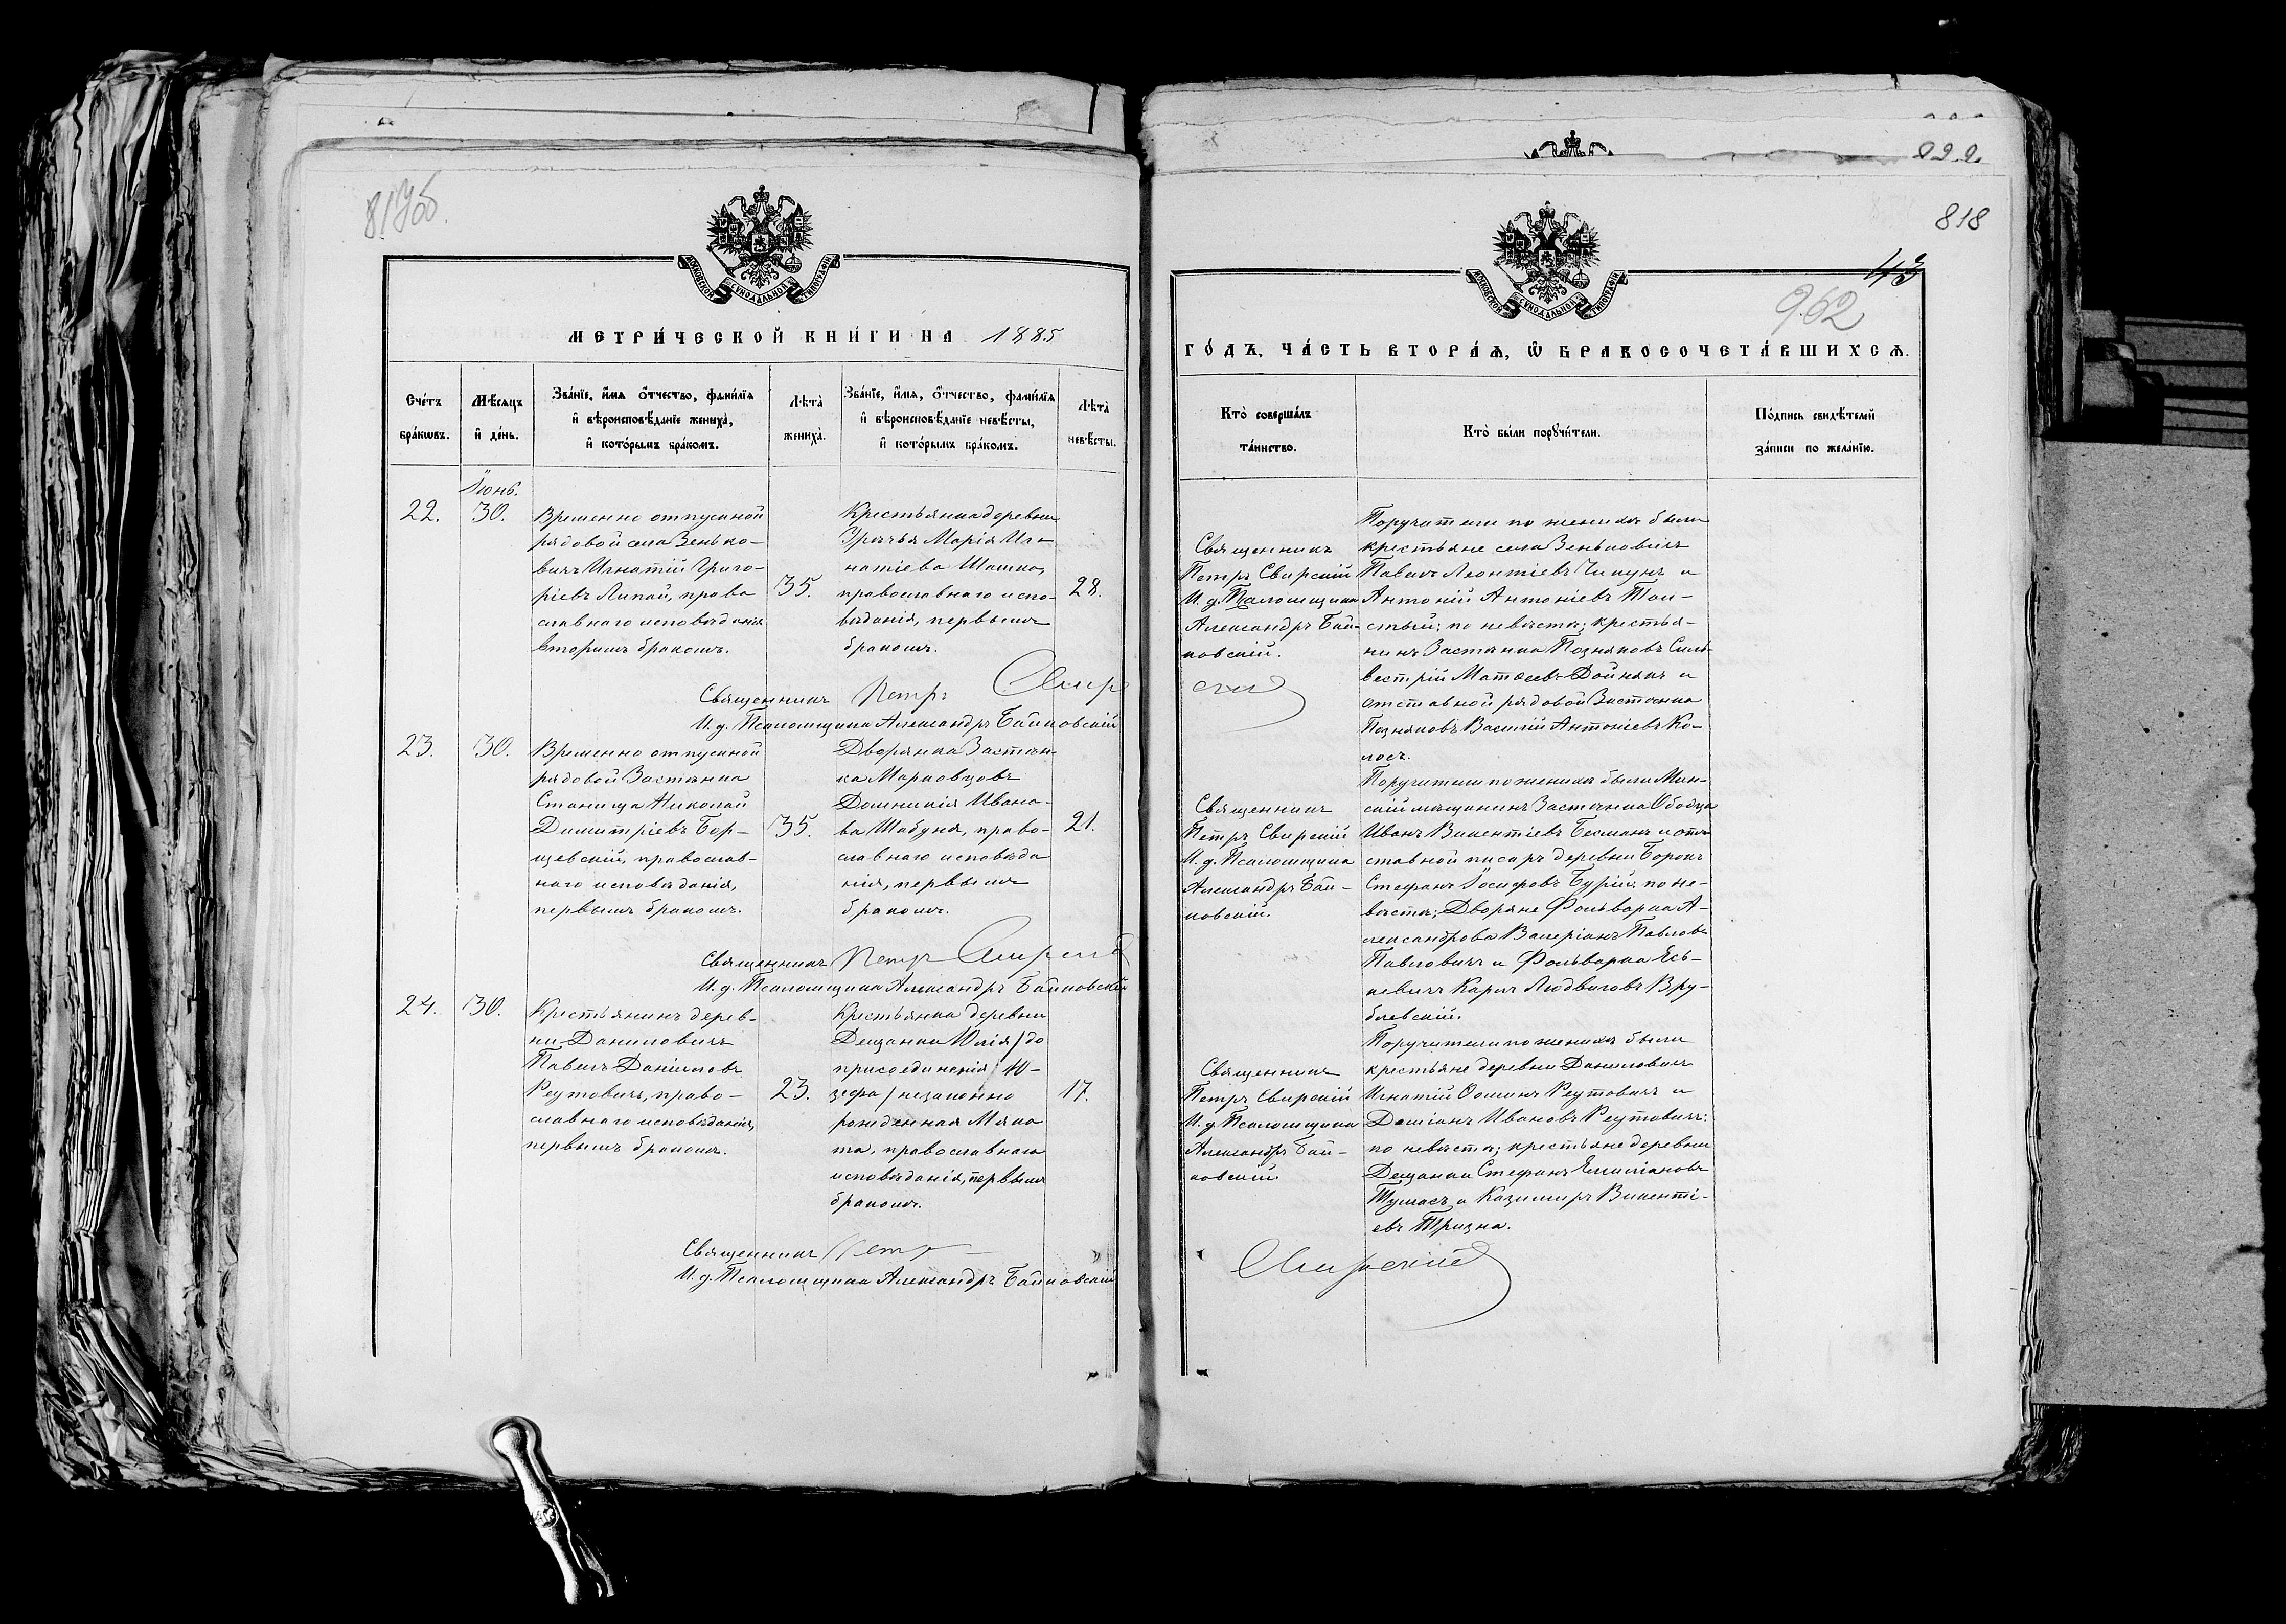 818
43
962
МОСКОВСКОЙ СѴНОДАЛЬНОЙ ТИПОГРАФІИ
МОСКОВСКОЙ СѴНОДАЛЬНОЙ ТИПОГРАФІИ
МЕТРИ́ЧЕСКОЙ КНИ́ГИ НА 1885
ГО́ДЪ, ЧА́СТЬ ВТОРА́Ѧ, Ѽ БРАКОСОЧЕТА́ВШИХСѦ.
Сче́тъ
бра́кѡвъ.
Мѣ́сѧцъ
и҆ де́нь.
Зва́нїе, и҆́мѧ ѻ҆́тчество, фами́лїѧ
и҆ вѣроисповѣ́данїе жениха̀,
и҆ кото́рымъ бра́комъ.
Лѣта̀
жениха̀.
Зва́нїе, и҆́мѧ, ѻ҆́тчество, фами́лїѧ
и҆ вѣроисповѣ́данїе невѣ́сты,
и҆ кото́рымъ бра́комъ.
Лѣта̀
невѣ́сты.
Кто̀ соверша́лъ
та́инство.
Кто̀ бы́ли порꙋчи́тели.
По́дпись свидѣ́телей
за́писи по жела́нїю.
Іюнь.
22.
30.
Временно отпускной
рядовой села Зенько-
вичъ Игнатій Григо-
ріевъ Липай, право
славнаго исповѣданія
вторымъ бракомъ.
35.
Крестьянка деревни
Урѣчья Марія Иг-
натіева Шашко,
православнаго испо-
вѣданія, первымъ
бракомъ.
28.
Священникъ
Петръ Свирскій
И. д. Псаломщика
Александръ Бай-
ковскій.
Поручители по женихѣ были
крестьяне села Зеньковичъ
Павелъ Леонтіевъ Чикунъ и
Антоній Антоніевъ Тол-
стый; по невѣстѣ; крестья-
нинъ Застѣнка Позняковъ Силь-
вестрій Матѳеевъ Дойнякъ и
отставной рядовой Застѣнка
Позняковъ Василій Антоніевъ Ко-
лосъ.
Священникъ Петръ Свирскій
И. д. Псаломщика Александръ Байковскій
23.
30.
Временно отпускной
рядовой Застѣнка
Станища Николай
Димитріевъ Бор-
щевскій, православ-
наго исповѣданія,
первымъ бракомъ.
35.
Дворянка Застѣн-
ка Марковцовъ
Домникія Ивано-
ва Шабуня, право-
славнаго исповѣда
нія, первымъ
бракомъ.
21.
Священникъ
Петръ Свирскій
И. д. Псаломщика
Александръ Бай-
ковскій.
Поручители по женихѣ были Мин-
скій мѣщанинъ Застѣнка Ободца
Иванъ Викентіевъ Бесманъ и от-
ставной писарь деревни Борокъ
Стефанъ Іосифовъ Бурій; по не-
вѣстѣ; Дворяне Фольварка А-
лександрова Валеріанъ Павловъ
Павловичъ и Фольварка Есь-
кевичъ Карлъ Людвиговъ Вру-
блевскій.
Священникъ Петръ Свирскій
И. д. Псаломщика Александръ Байковскій
24.
30.
Крестьянинъ дерев-
ни Даниловичъ
Павелъ Даніиловъ
Реутовичъ, право-
славнаго исповѣданія,
первымъ бракомъ.
23.
Крестьянка деревни
Дещанки Юлія /до
присоединенія Ю-
зефа/ незаконно
рожденная Мяко
та, православнаго
исповѣданія, первымъ
бракомъ.
17.
Священникъ
Петръ Свирскій
И. д. Псаломщика
Александръ Бай-
ковскій
Поручители по женихѣ были
крестьяне деревни Даниловичъ
Игнатій Фоминъ Реутовичъ и
Даміанъ Ивановъ Реутовичъ:
по невѣстѣ; крестьяне деревни
Дещанки Стефанъ Емиліановъ
Тумасъ и Казимиръ Викенті-
евъ Тризна.
Священникъ Петръ Свирскій
И. д. Псаломщика Александръ Байковскій